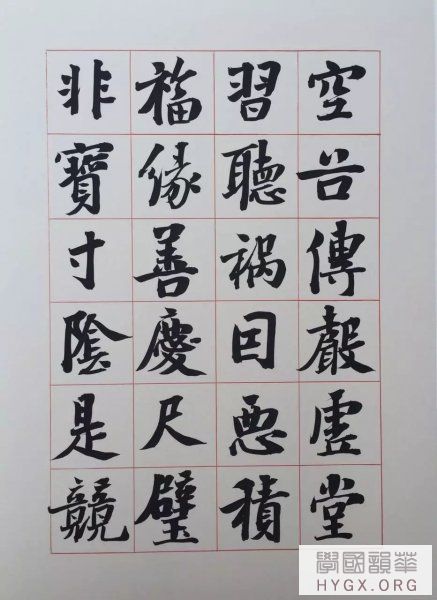 空谷傳聲虛堂
習聽禍因惡積
福緣善慶尺璧
非寶寸陰是競
華韻國學
HYGX.ORG